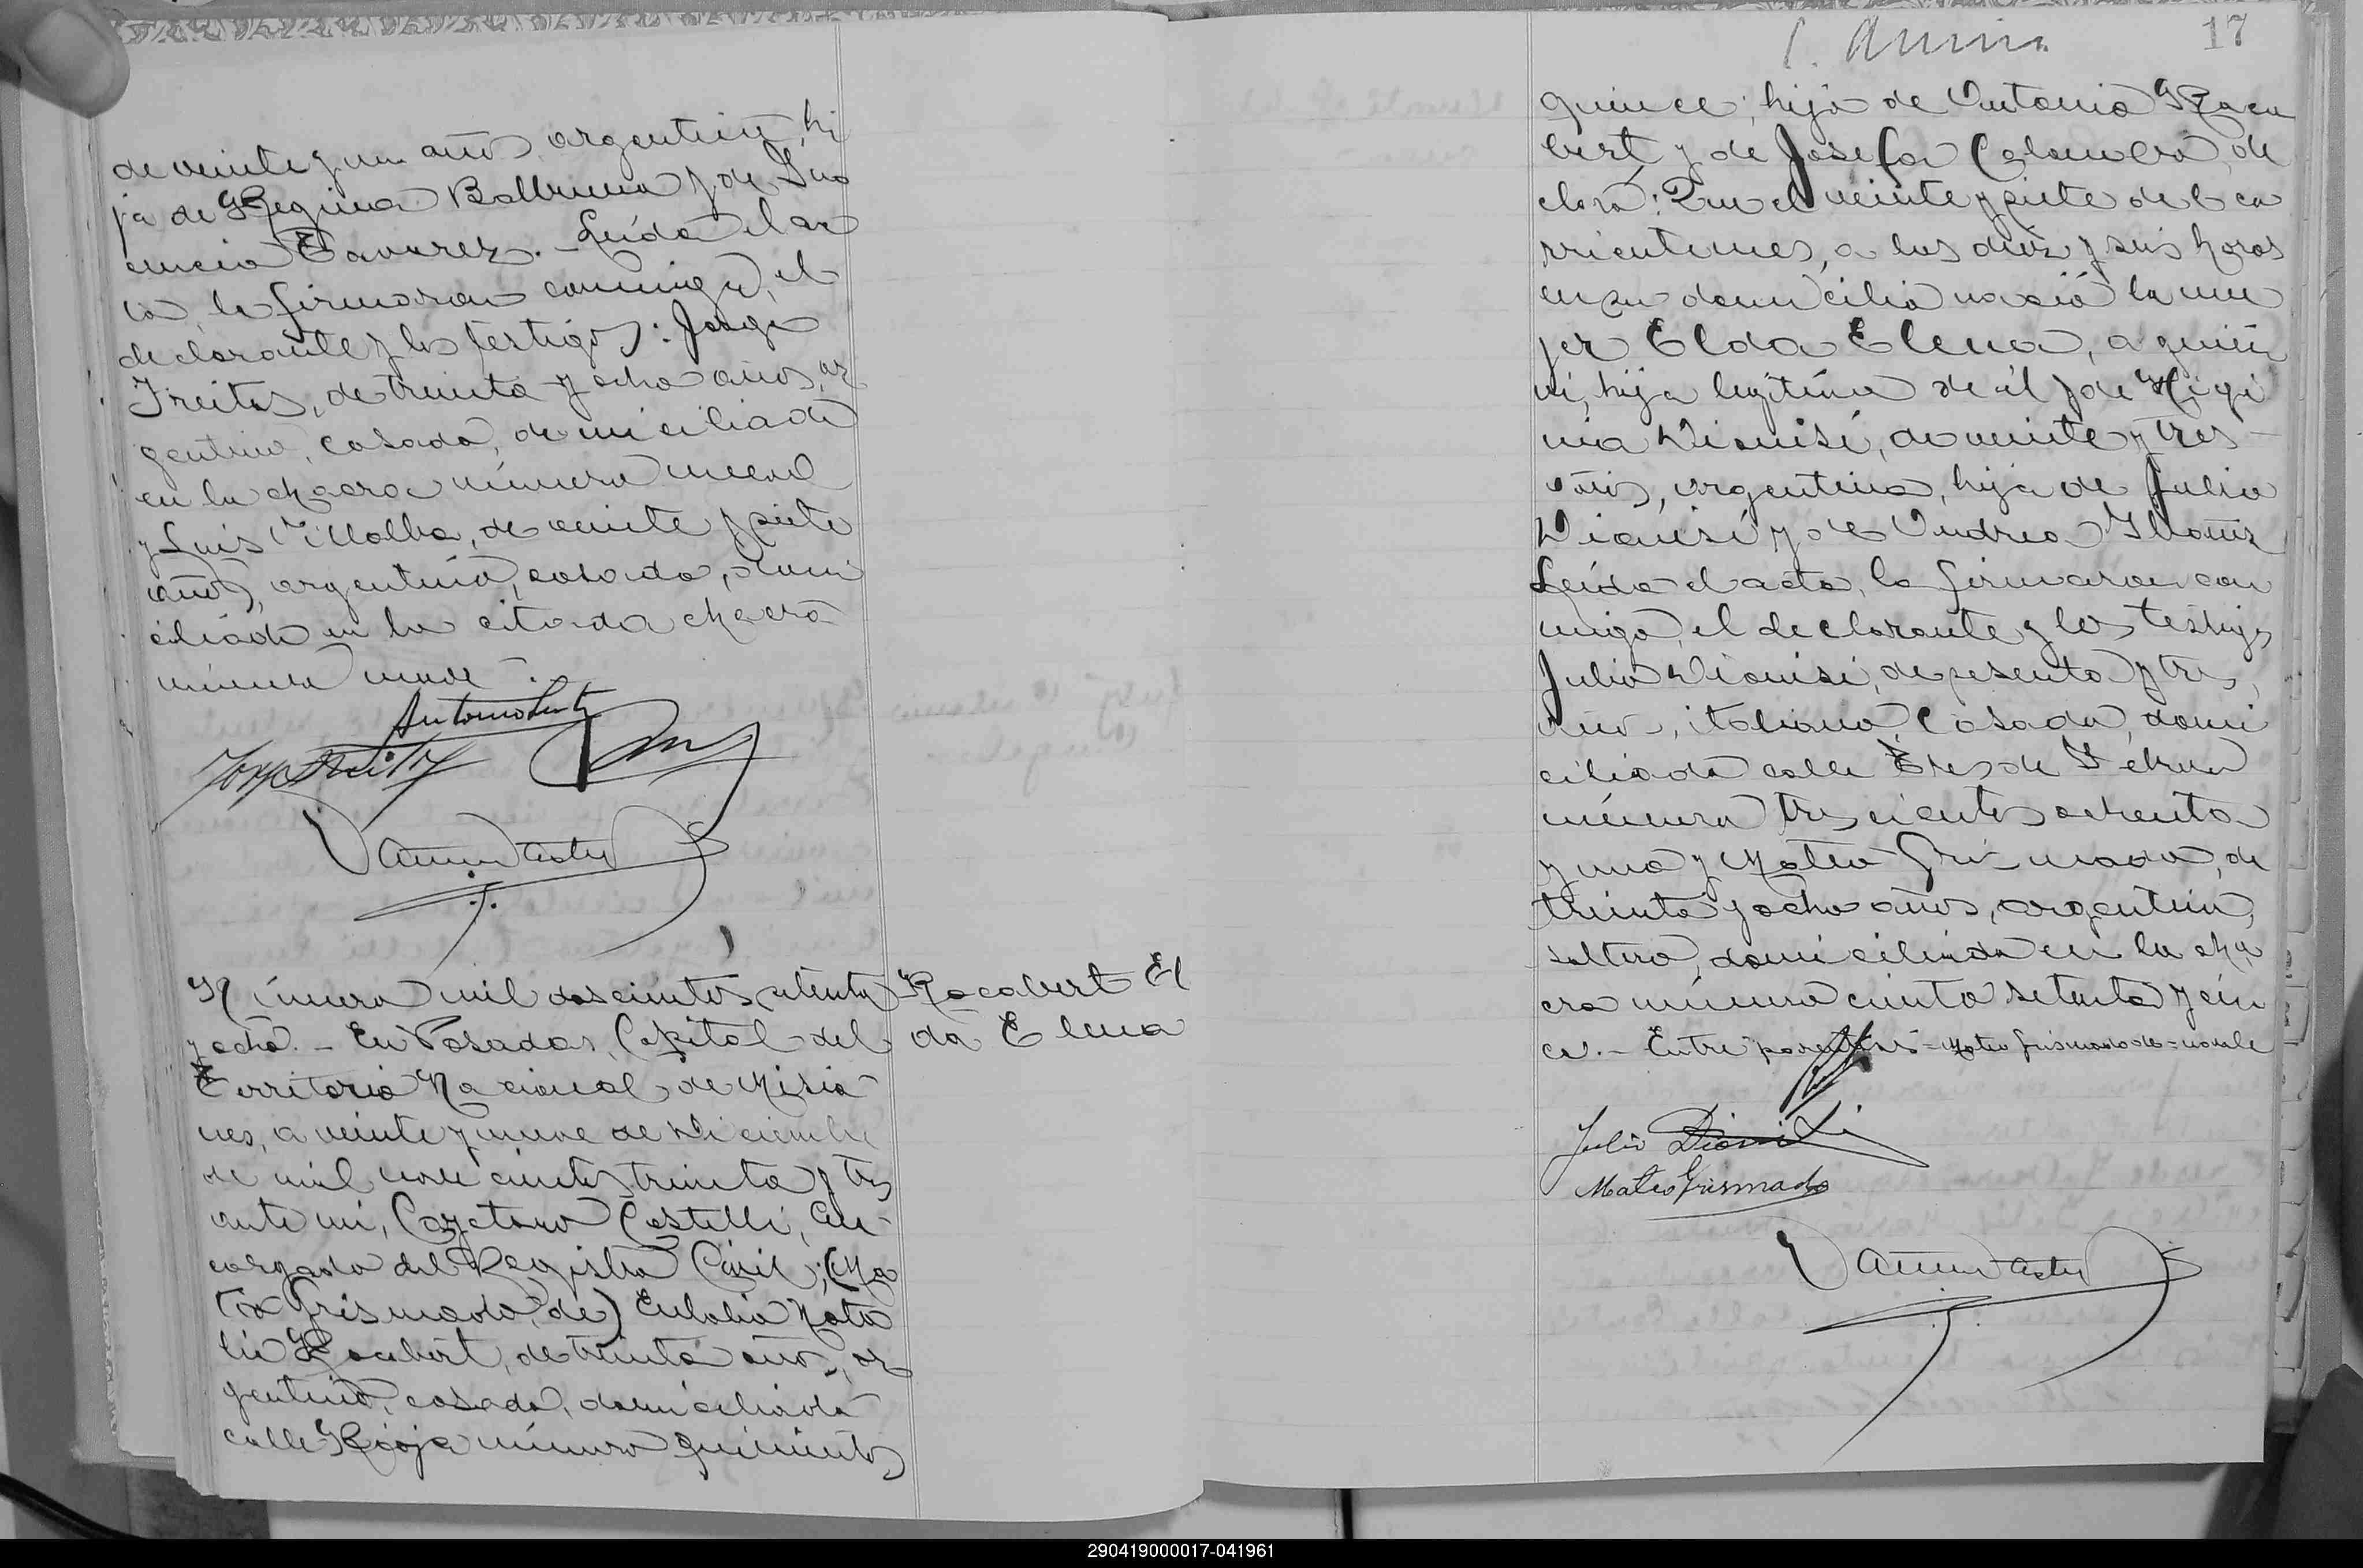 de veinte y un años, argentina, hi
ja de Regina Balbuena y de Ino
cencia Tavarez. - Leída el ac
ta, la firmaron conmigo, el
declarante y los testigos: Jorge
Freitas, de treinta y ocho años, ar
gentino, casado, domiciliado
en la chacra número nueve
y Luis Villalba, de veinte y siete
años, argentino, casado, domi
ciliado en la citada chacra
número nueve.
Número mil doscientos setenta
y ocho. - En Posadas, Capital del
Territorio Nacional de Misio
nes, a veinte y nueve de Diciembre
de mil novecientos treinta y tres
ante mi, Cayetano Castelli, En
cargado del Registro Civil; (Ma
teo Grismado, de) Eulalio Nata
lio Racabert, de treinta años, ar
gentino, casado, domiciliado
calle Rioja número quinientos
Racabert El
da Elena
17
quince; hijo de Antonio Raca
bert y de Josefa Colombra, de
clara: Que el veinte y siete del co
rriente mes, a las diez y seis horas
en su domicilio nació la mu
jer Elda Elena, a quien
vi, hija legítima de él y de Higi
nia Dionisi, de veinte y tres
años, argentina, hija de Julio
Dionisi y de Andrea Ibañez
Leída el acta, la firmaron con
migo, el declarante y los testigos
Julio Dionisi, de sesenta y tres
años, italiano, casado, domi
ciliado calle Tres de Febrero
número trescientos ochenta
y uno y Mateo Grismado, de
treinta y ocho años, argentino,
soltero, domiciliado en la cha
cra número ciento setenta y cin
co. - Entre parentesis = Mateo Grismado de = no vale
Julio Dionisi
Mateo Grismado